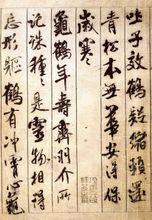 吐子效鶴疑縮頸還
青松本無華安得保
歲寒
龜鶴年壽齊羽介所
託殊種種是靈物相得
忘形軀鶴有沖霄心龜